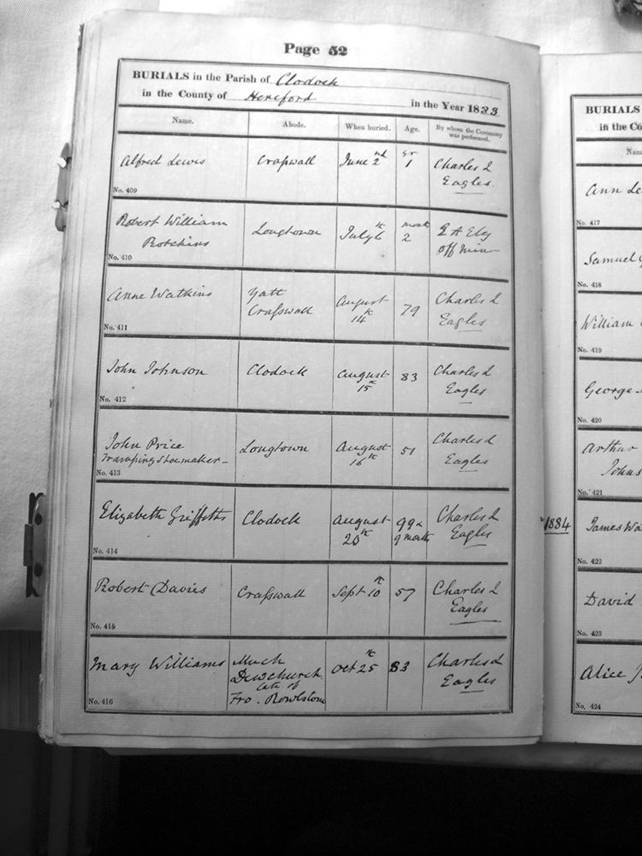 Page 52
BURIALS in the Parish of Clodock
in the County of Hereford in the Year 1883
Name. Abode. When buried. Age. By whom the Ceremony was performed.
Alfred Lewis Craſwall June 2nd yr 1 Charles L Eagles.
No. 409
Robert William Longtown July 6th month 2
off min
No. 410
Anne Watkins Craſwall August 14th 79 Charles L Eagles
No. 411
John Johnson Clodock August 15th 83 Charles L Eagles
No. 412
John Price Longtown August 16th 51 Charles L Eagles
Tramping Shoemaker
No. 413
Elizabeth Griffiths Clodock August 20th 99 & 9 month Charles L Eagles
No. 414
Robert Davies Craſwall Sept 10th 57 Charles L Eagles
No. 415
Mary Williams Much Dewchurch late of Rowlstone Oct 25th 83 Charles L Eagles
No. 416
BURIALS
in the Co
Nam
Ann Le
No. 417
Samuel
No. 418
William
No. 419
George
No. 420
Arthur
Johns
No. 421
1884
James Wa
No. 422
David
No. 423
Alice
No. 424